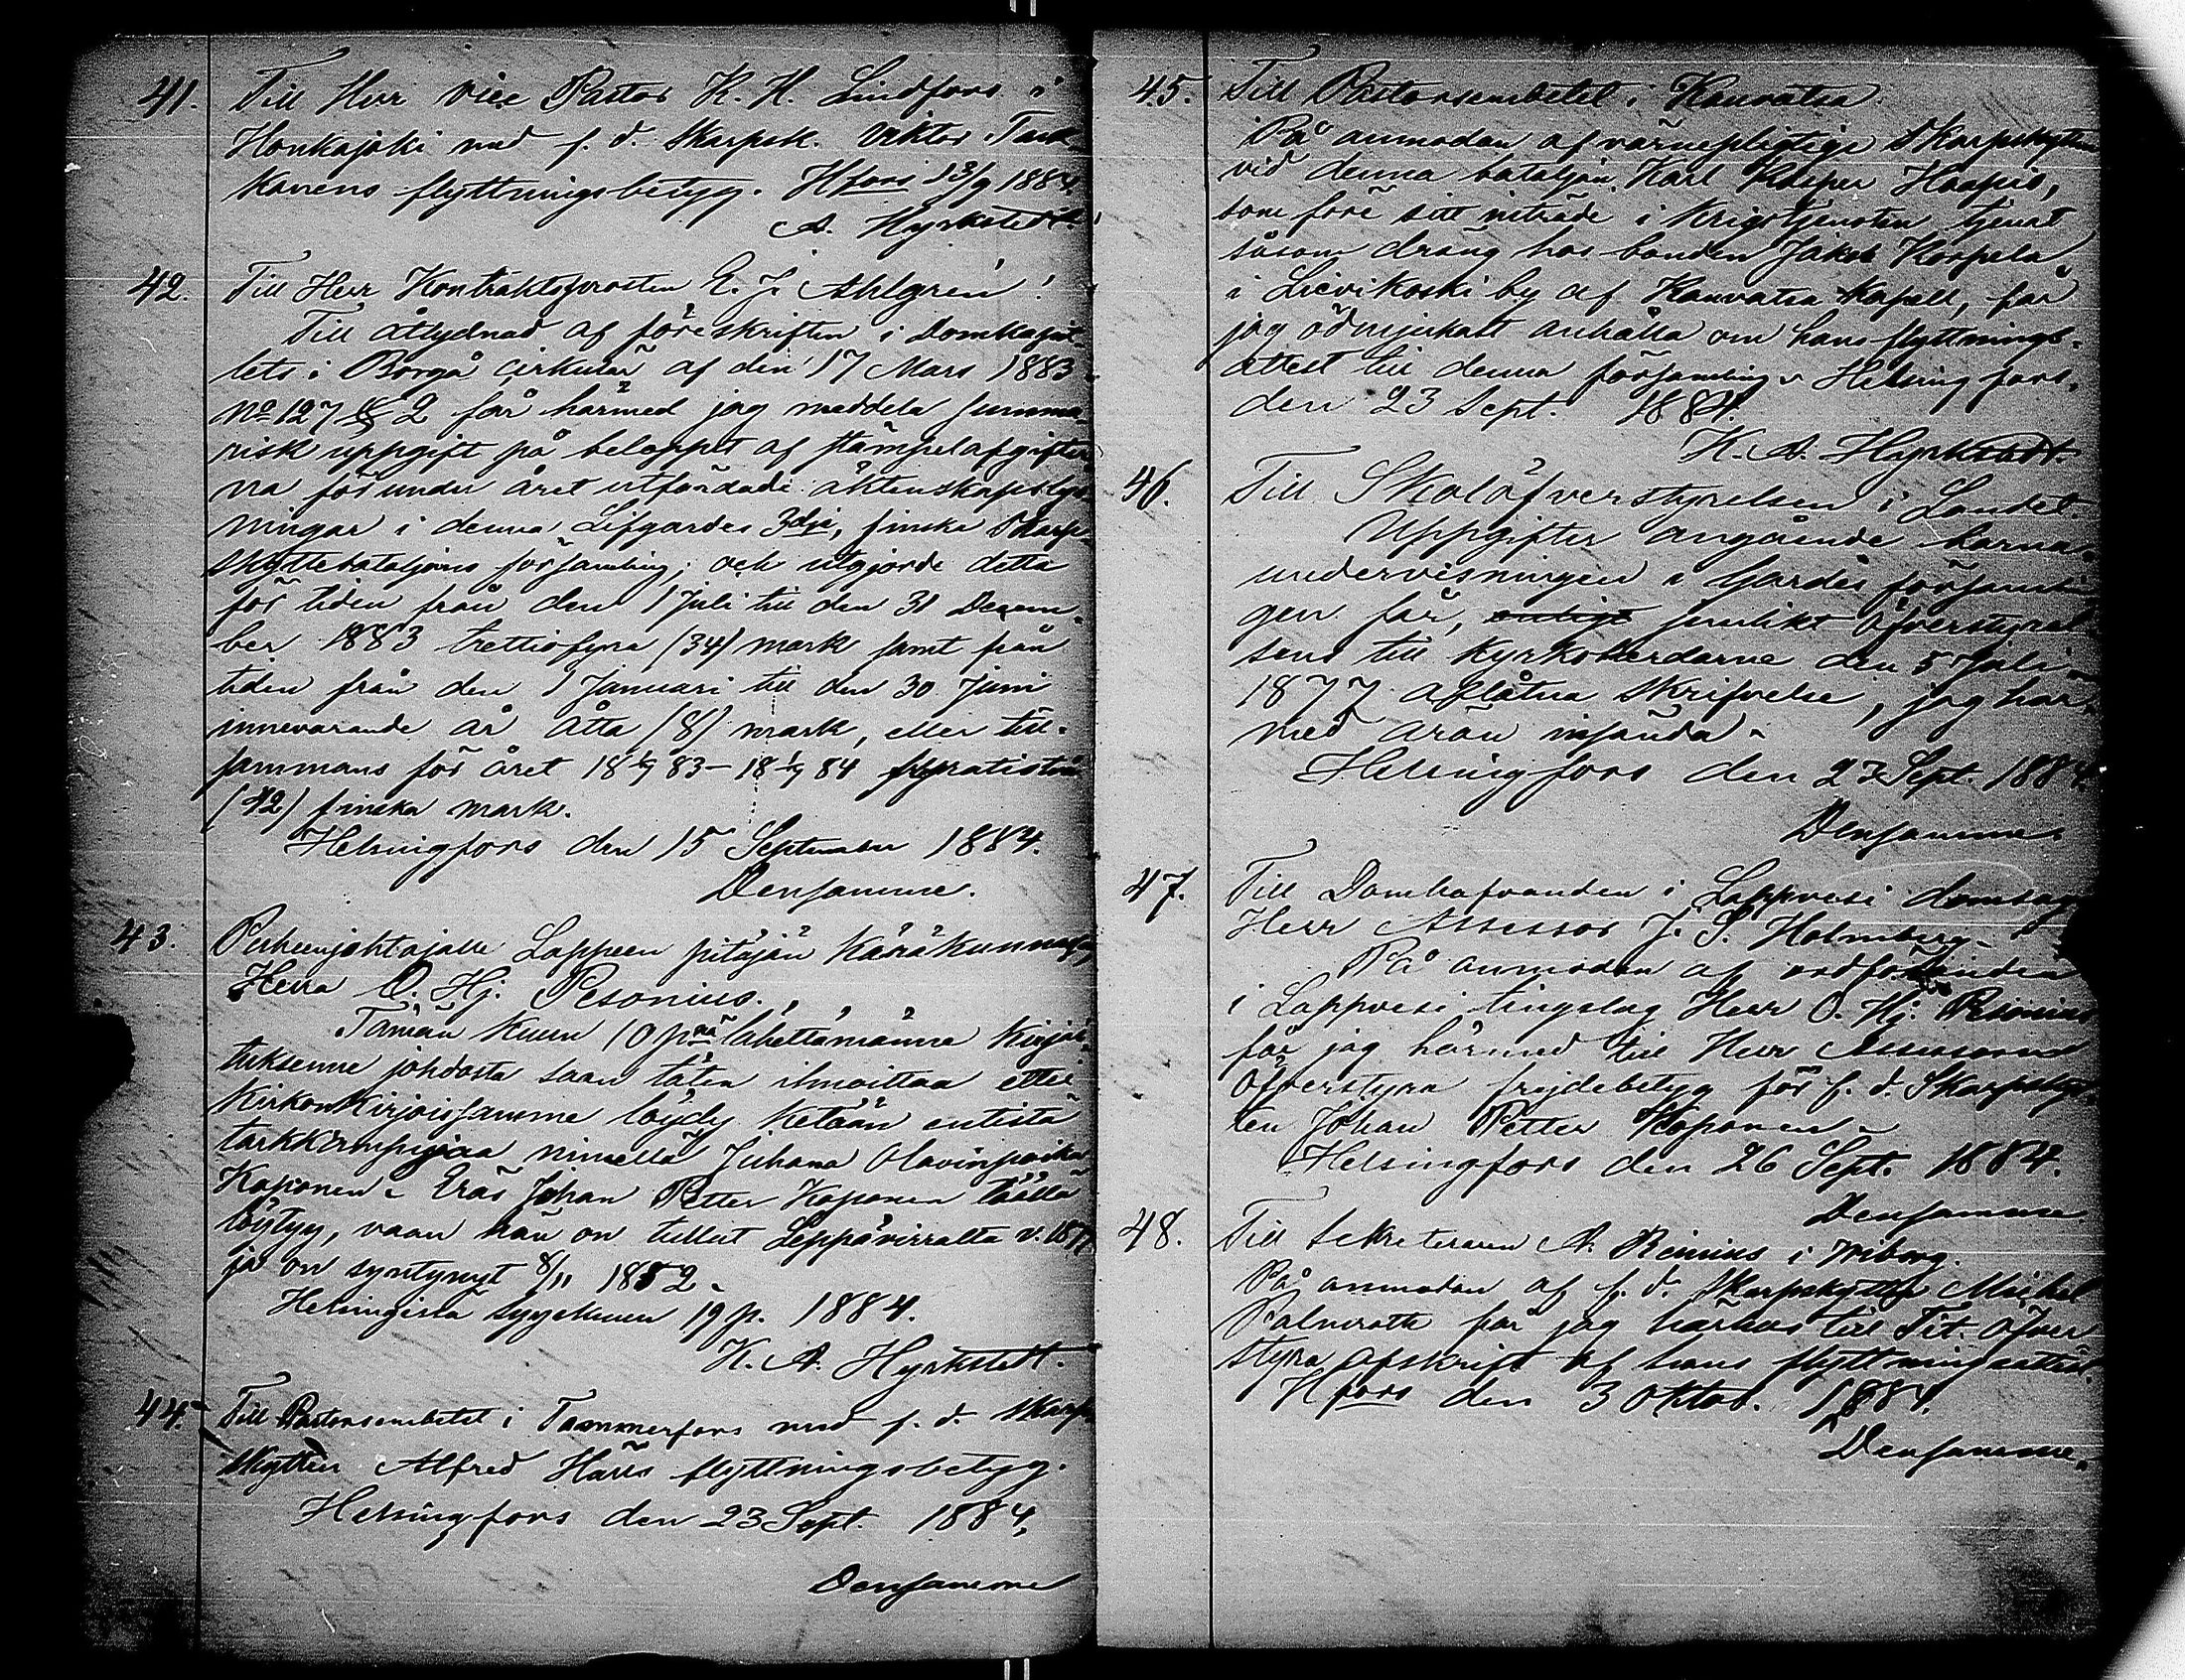 41. Till Herr Vice Pastor K. H. Lindfors i
Honkajoki med f. d. Skarpsk. Viktor Tusk-
kanens flyttningsbetyg. Hfors 13/9 1884
A. Hyrkstedt.
42. Till Herr Kontraktsprosten E. J. Ahlgren!
Till åtlydnad af föreskriften i Domkapit-
lets i Borgå cirkulär af den 17 Mars 1883
No 127 § 2 får härmed jag meddela summa-
risk uppgift på beloppet af stämpelafgifter-
na för under året utfärdade äktenskapslys-
ningar i denna Lifgardes 3dje, finska Skarp-
skyttebataljons församling; och utgjorde detta
för tiden från den 1 Juli till den 31 Decem-
ber 1883 trettiofyra (34) mark samt från
tiden från den 1 Januari till den 30 Juni
innevarande år åtta (8) mark, eller till-
sammans för året 18 1/7 83 – 18 1/7 84 fyratiotvå
(42) finska mark.
Helsingfors den 15 September 1884.
Densamme.
43. Perheenjohtajalle Lappeen pitäjän käräkunnassa,
Herra O. Hj. Pesonius.
Tämän kuun 10 pnä lähettämänne kirjoi-
tuksenne johdosta saan täten ilmoittaa ettei
kirkonkirjoissamme löydy ketään entistä
tarkk'ampujaa nimellä Juhana Olavinpoika
Kaponen. Eräs Johan Petter Koponen täällä
löytyy, vaan hän on tullut Leppävirralta v. 1877
ja on syntynyt 8/11 1852.
Helsingistä syyskuun 19 p. 1884.
K. A. Hyrkstedt.
44. Till Pastorsembetet i Tammerfors med f. d. Skarp-
skytten Alfred Harls flyttningsbetyg.
Helsingfors den 23 Sept. 1884.
Densamme
45. Till Pastorsembetet i Kauvatsa.
På anmodan af värnepligtige Skarpskytten
vid denna bataljon Karl Kasper Haapio,
som före sitt inträde i Krigstjensten tjenat
såsom dräng hos bonden Jakob Korpela
i Lievikoski by af Kauvatsa Kapell, får
jag ödmjukast anhålla om hans flyttnings-
attest till denna församling. Helsingfors,
den 23 Sept. 1884.
K. A. Hyrkstedt.
46. Till Skolöfverstyrelsen i Landet.
Uppgifter angående barna-
undervisningen i Gardes församlin-
gen får, enligt jemlikt öfverstyrel-
sens till Kyrkoherdarne den 5 Juli
1877 aflåtna skrifvelse, jag här-
med äran insända.
Helsingfors den 23 Sept. 1884.
Densamme.
47. Till Domhafvanden i Lappvesi domsaga
Herr Assessor J. S. Holmberg.
På anmodan af ordföranden
i Lappvesi tingslag Herr O. Hj. Pesonius
får jag härmed till Herr Assessorn
öfverstyra frejdebetyg för f. d. Skarpskyt-
ten Johan Petter Koponen.
Helsingfors den 26 Sept. 1884.
Densamme
48. Till Sekreteraren A. Renius i Wiborg.
På anmodan af f. d. Skarpskytten Mickel
Palmroth får jag härhos till Tit. öfver-
styra afskrift af hans flyttningsattest.
Hfors den 3 Oktob. 1884.
Densamme.